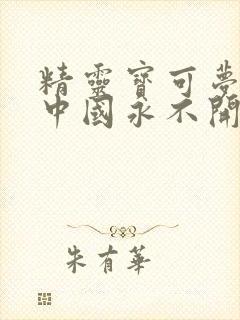 精靈寶可夢
中國永不開
朱有華